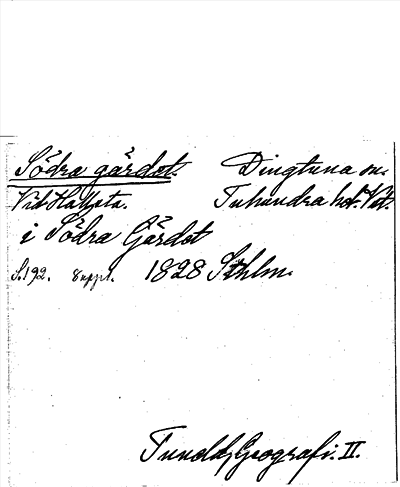 Södra gärdet. Dingtuna sn.
Vid Hallsta. Tuhundra hd. Vstm.
i Södra Gärdet
S. 192. suppl. 1828 Sthlm.
Tunelds Geografi. II.